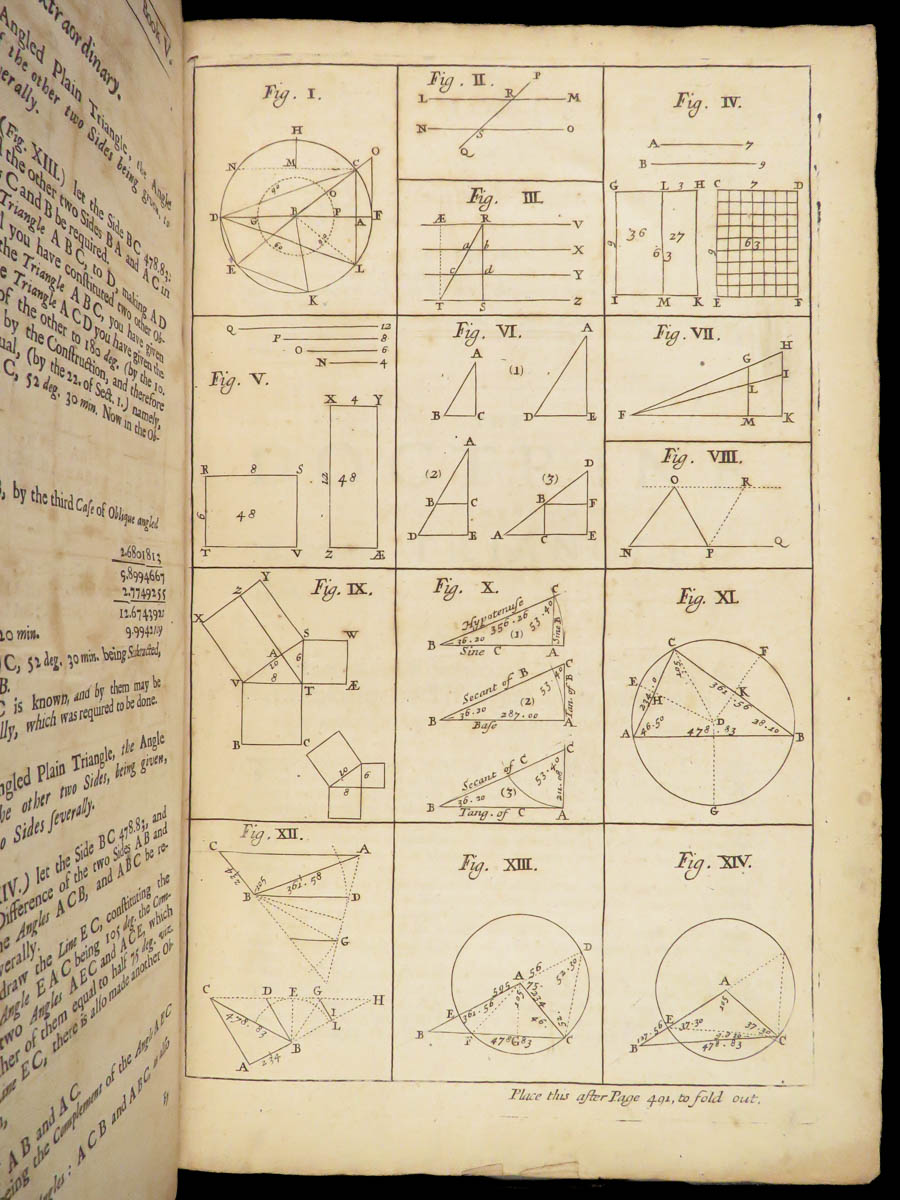 Book V.
xtraordinary.
Angled Plain Triangle, the Angle
of the other two Sides being given, to
erally.
(Fig. XIII.) let the Side BC 478.83;
the other two Sides BA and AC in
s C and B be required.
Triangle ABC, to D, making AD
d you have constituted two other Ob-
the Triangle ABC, you have given
e Triangle ACD you have given the
of the other to 180 deg. (by the 10.
by the Construction, and therefore
ual, (by the 22. of Sect. 1.) namely,
C, 52 deg. 30 min. Now in the Ob-
B, by the third Case of Oblique angled
2.6801813
9.8994667
2.7749255
12.6743921
20 min.
C, 52 deg. 30 min. being Subtracted,
B.
C is known, and by them may be
ally, which was required to be done.
ngled Plain Triangle, the Angle
he other two Sides, being given,
o Sides severally.
IV.) let the Side BC 478.83, and
Difference of the two Sides AB and
he Angles ACB, and ABC be re-
verally.
draw the Line EC, constituting the
Angle EAC being 105 deg. the Com-
two Angles AEC and ACE, which
her of them equal to half 75 deg. viz.
ine EC, there is also made another Ob-
AB and AC
eing the Complement of the Angle AEC
ngles: ACB and ABC, as also
by
Fig. I.
H
N M C O
O
D G B P A F
E L
K
Fig. II.
P
L R M
N S O
Q
Fig. III.
Æ R V
a b X
c d Y
T S Z
Fig. IV.
A 7
B 9
G L 3 H C 7 D
9 36 27 9 63
6 3
I M K E F
Q 12
P 8
O 6
N 4
Fig. V.
X 4 Y
R 8 S
12 48
6 48
T V Z Æ
Fig. VI.
A A
(1)
B C D E
A
(2) (3) D
B C B F
D E A C E
Fig. VII.
H
G I
L
F M K
Fig. VIII.
O R
N P Q
Fig. IX.
Y
Z
X S W
A 6
10
V 8 T Æ
B C
10 6
8
Fig. X.
C
Hypotenuse
356.26 53.40
B 36.20 (1) Sine B
Sine C A
C
Secant of B 53.40
(2) Tan. of B
B 36.20 287.00
Base A
C
Secant of C 53.40
(3) 211.08
B 36.20
Tang. of C A
Fig. XI.
C F
E 105 361.56 K
234.0 H
D
A 46.50 478.83 28.10 B
G
Fig. XII.
C A
234 105 361.58
B D
G
C D E G H
I
478.83 L
B
A 234
Fig. XIII.
D
A 56 52.30
595 75
E 361.56 105 234
46. 52
B F 478.83 G C
Fig. XIV.
A
105
E
117.56 37.30 37.30
B 478.83 C
Place this after Page 491, to fold out.